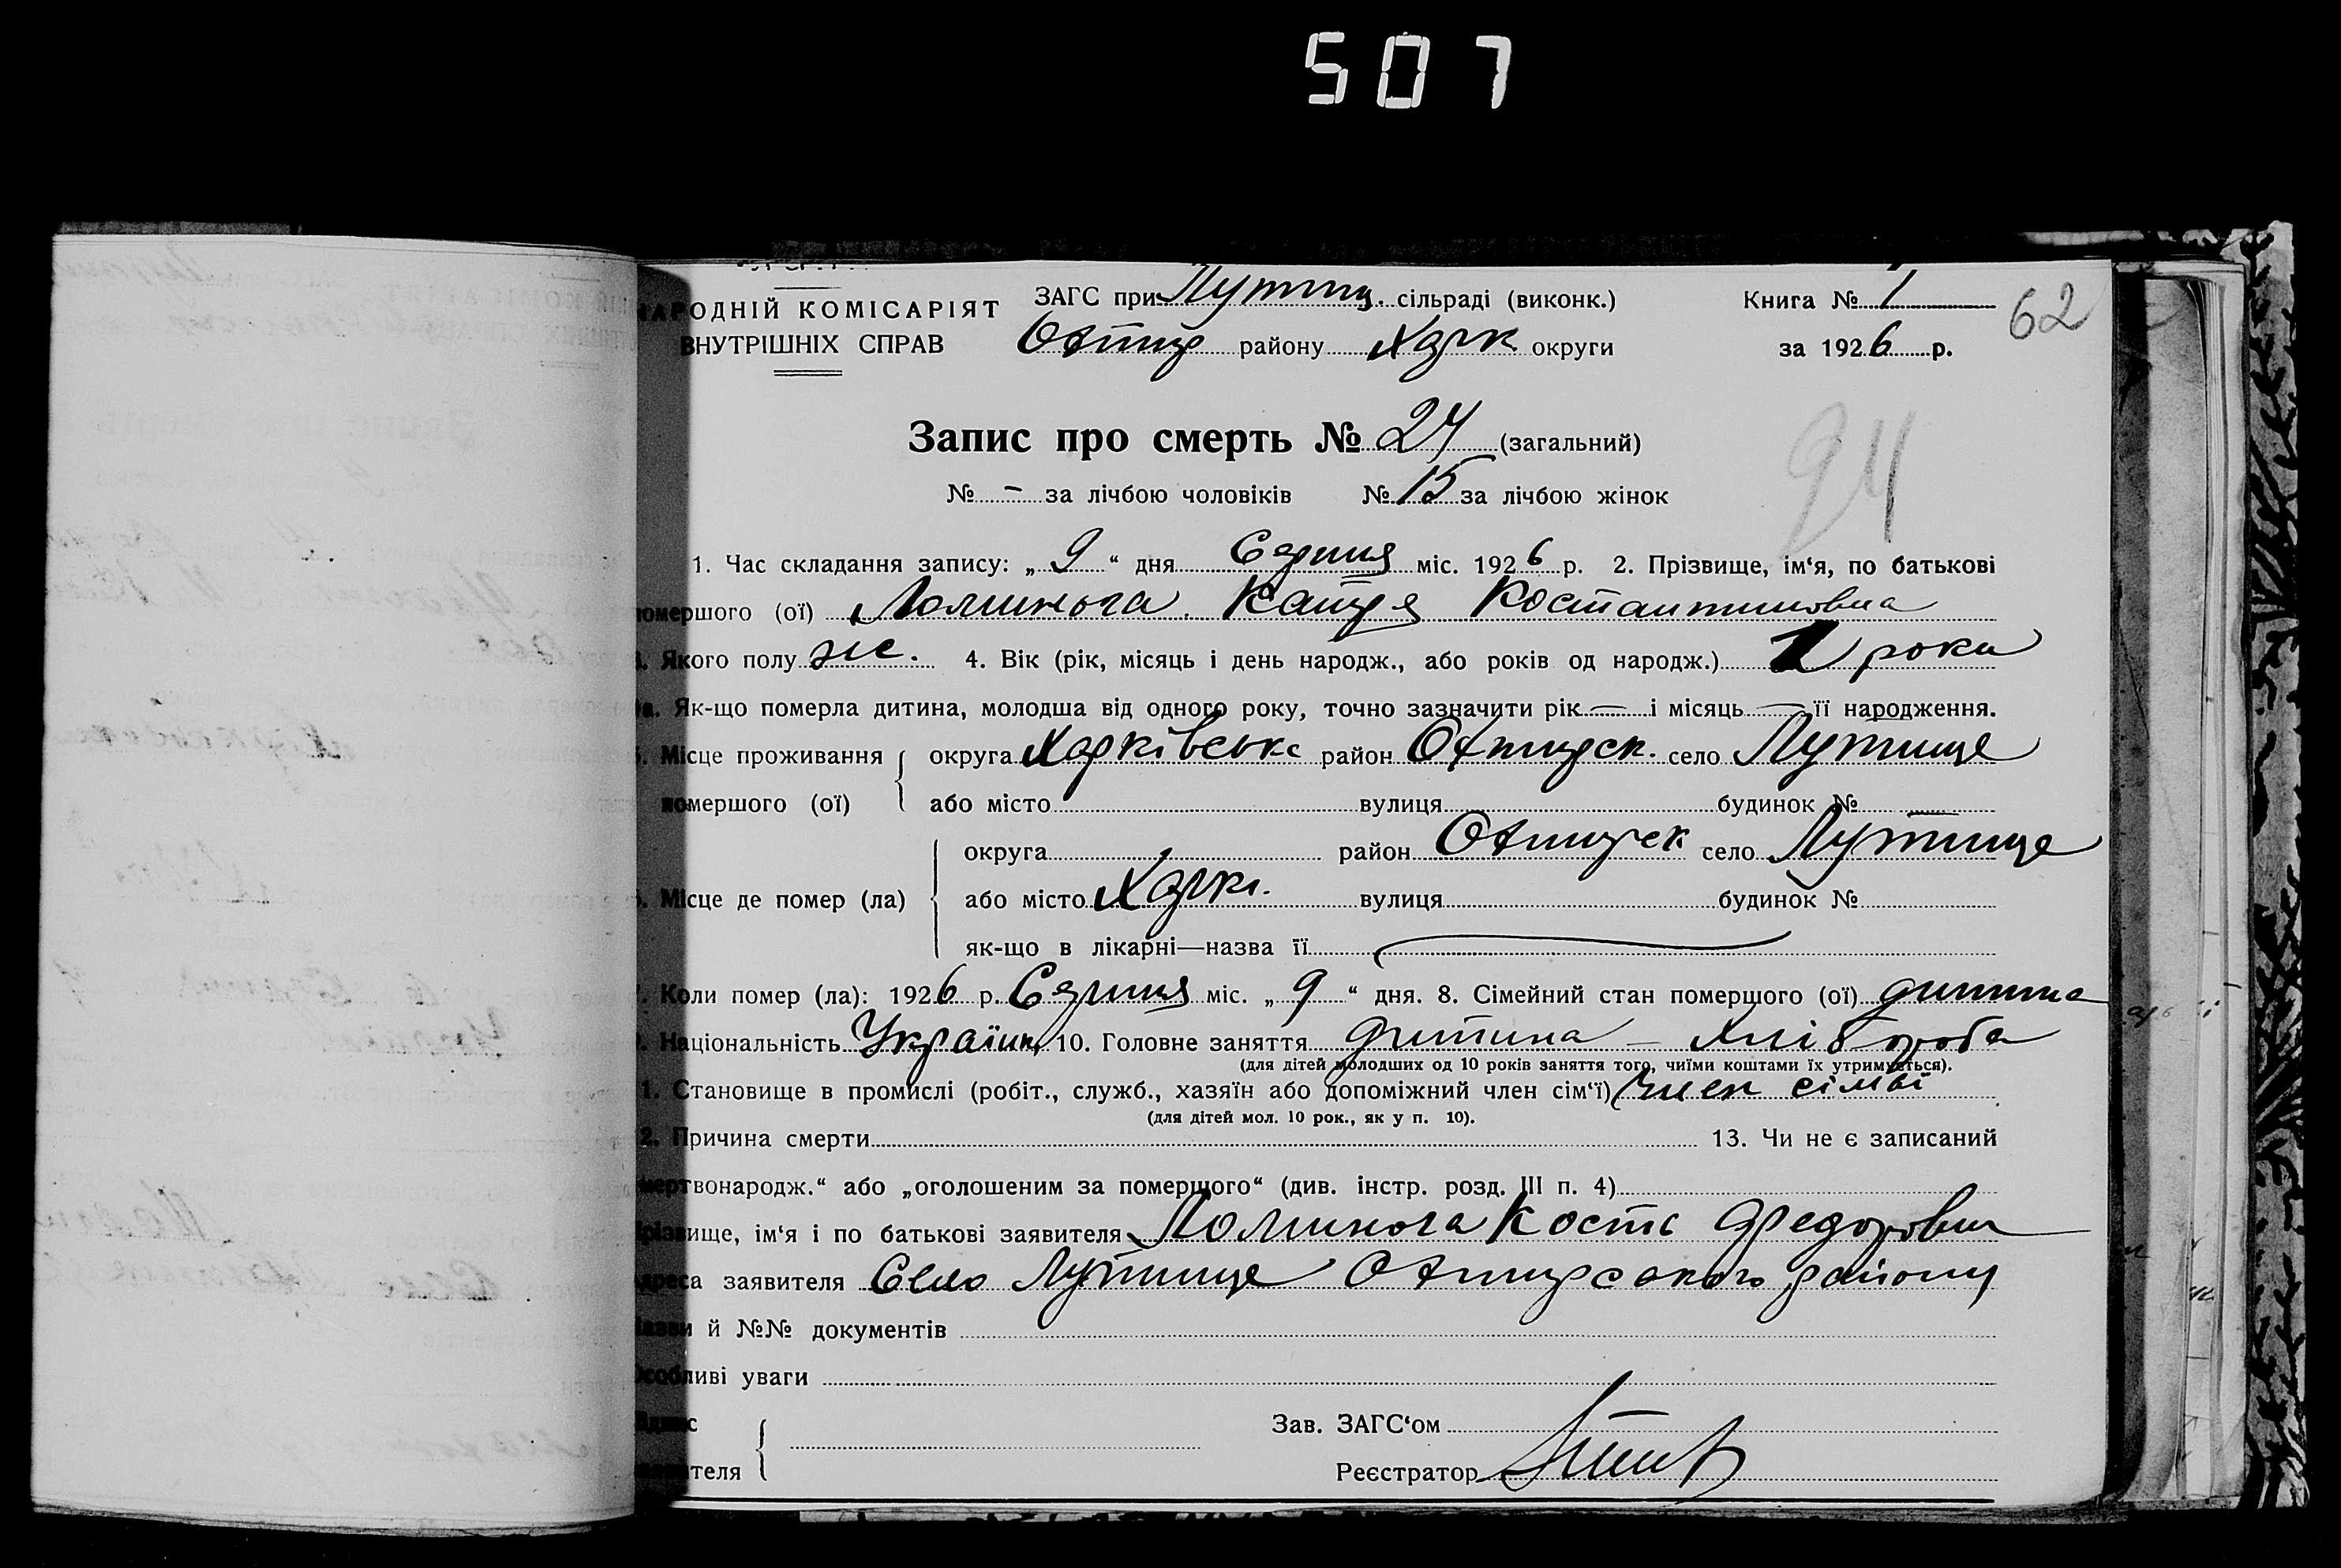 507
НАРОДНІЙ КОМІСАРІЯТ
ВНУТРІШНІХ СПРАВ
ЗАГС при Лутищ. сільраді (виконк.)
Охтир району Харк округи
Книга № 1
за 1926 р.
62
Запис про смерть № 24 (загальний)
24
№ – за лічбою чоловіків № 15 за лічбою жінок
1. Час складання запису: „ 9 “ дня Серпня міс. 1926 р. 2. Прізвище, ім‘я, по батькові
помершого (ої) Катря Костантиновна
Якого полу жс. 4. Вік (рік, місяць і день народж., або років од народж.) 1 рока
Як-що померла дитина, молодша від одного року, точно зазначити рік — і місяць — її народження.
Місце проживання округа Харківськ район Охтирск. село Лутище
помершого (ої) або місто вулиця будинок №
округа район Охтирск село Лутище
Місце де помер (ла) або місто Харкі. вулиця будинок №
як-що в лікарні—назва її
Коли помер (ла): 1926 р. Серпня міс. „ 9 “ дня. 8. Сімейний стан помершого (ої) дитина
Національність Україн. 10. Головне заняття дитина – хлібороба
(для дітей молодших од 10 років заняття того, чиїми коштами їх утримується).
Становище в промислі (робіт., служб., хазяїн або допоміжний член сім‘ї) член сімьї
(для дітей мол. 10 рок., як у п. 10).
Причина смерти 13. Чи не є записаний
мертвонародж.“ або „оголошеним за помершого“ (див. інстр. розд. III п. 4)
Прізвище, ім‘я і по батькові заявителя Кость Федорович
Адреса заявителя Село Лутище Охтирського району
й №№ документів
Особливі уваги
Зав. ЗАГС‘ом
Реєстратор